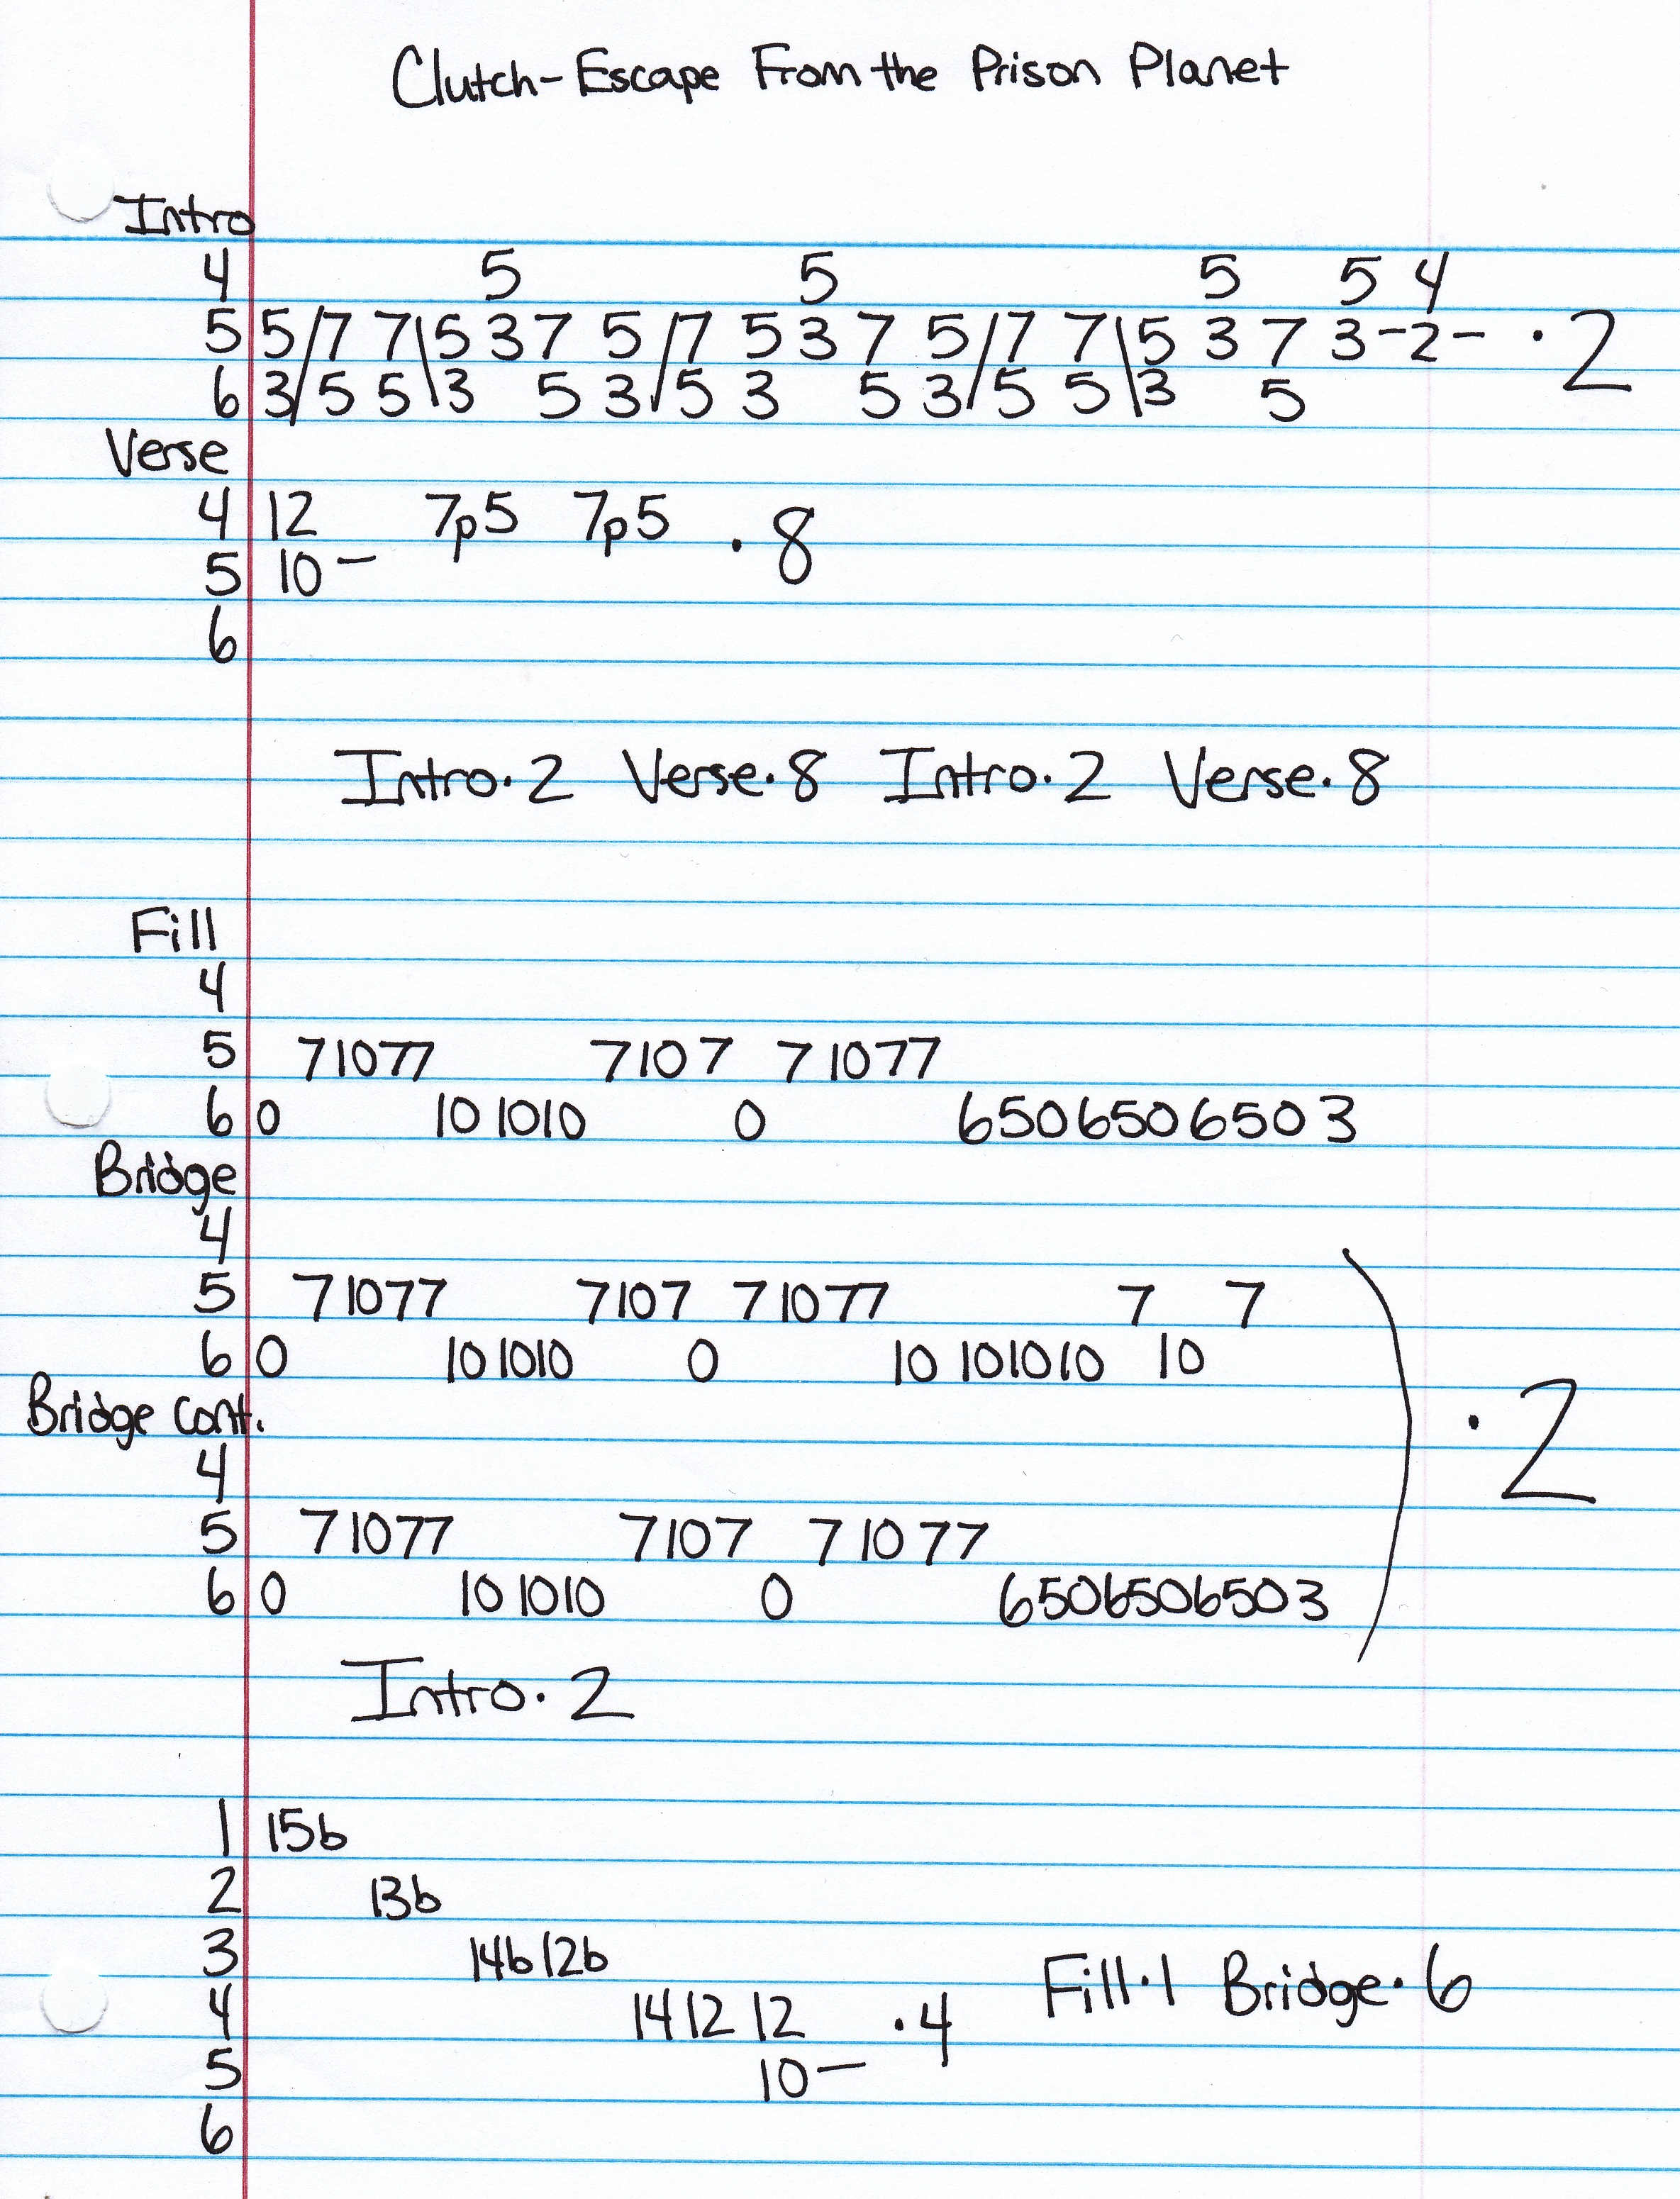 Clutch-Escape From the Prison Planet
Intro
4 5 5 5 5 4
5 5/7 7\5 3 7 5/7 5 3 7 5/7 7\5 3 7 3-2- ·2
6 3/5 5\3 5 3/5 3 5 3/5 5\3 5
Verse
4 12 7p5 7p5 ·8
5 10-
6
Intro·2 Verse·8 Intro·2 Verse·8
Fill
4
5 7 10 7 7 7 10 7 7 10 7 7
6 0 10 10 10 0 6 5 0 6 5 0 6 5 0 3
Bridge
4
5 7 10 7 7 7 10 7 7 10 7 7 7 7
6 0 10 10 10 0 10 10 10 10 10
Bridge Cont. ·2
4
5 7 10 7 7 7 10 7 7 10 7 7
6 0 10 10 10 0 6 5 0 6 5 0 6 5 0 3
Intro·2
1 15b
2 13b
3 14b 12b
4 14 12 12 ·4 Fill·1 Bridge·6
5 10-
6